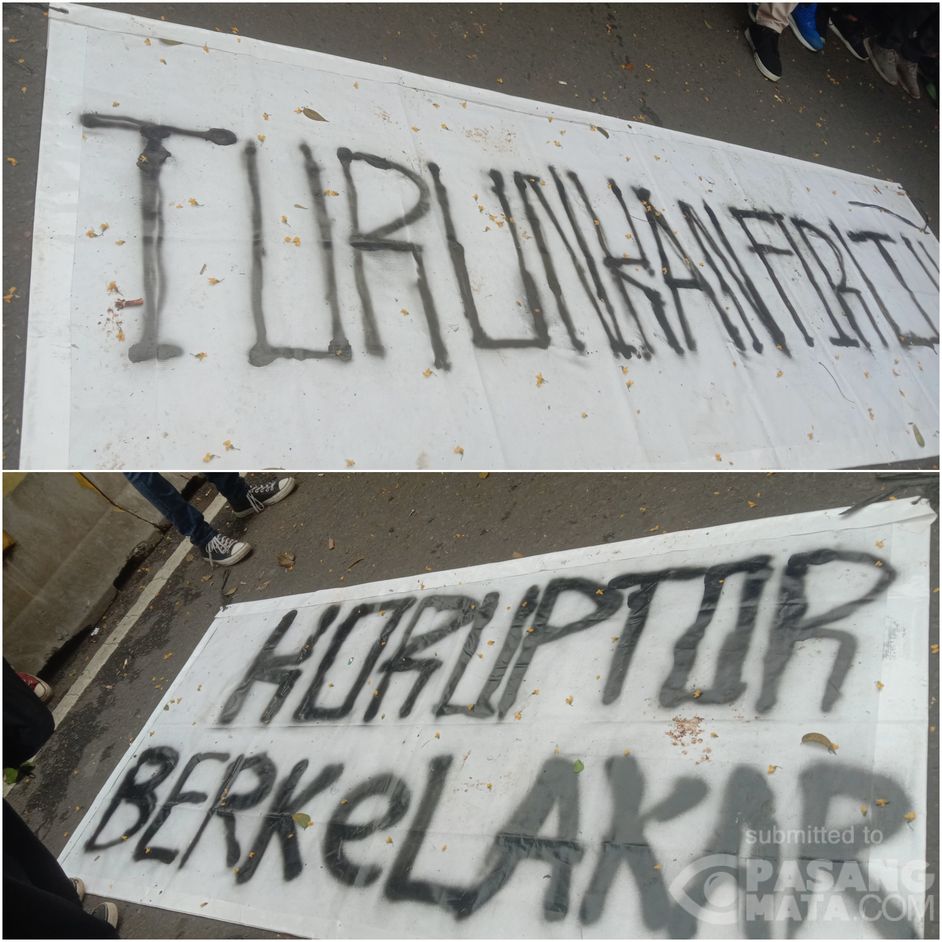 TURUNKAN FIRTU
KORUPTOR
BERKeLAKAR
submitted to
PASANG
MATA.COM